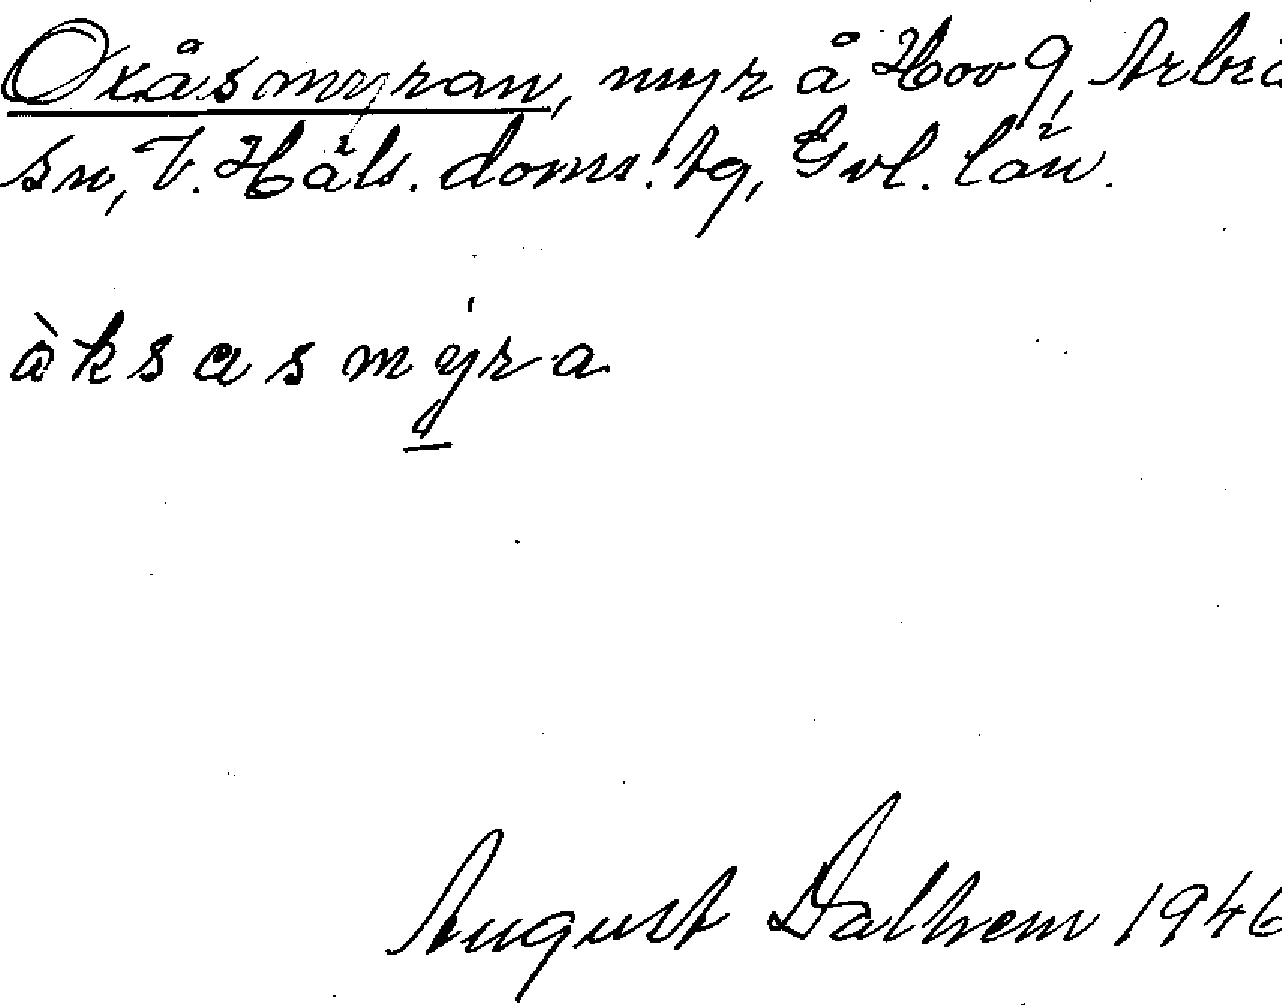 Oxåsmyran, myr å Hoog, Arbrå
sn, V. Häls. doms. tg, Gvl. län.
àksasmýra
August Dalhem 1946